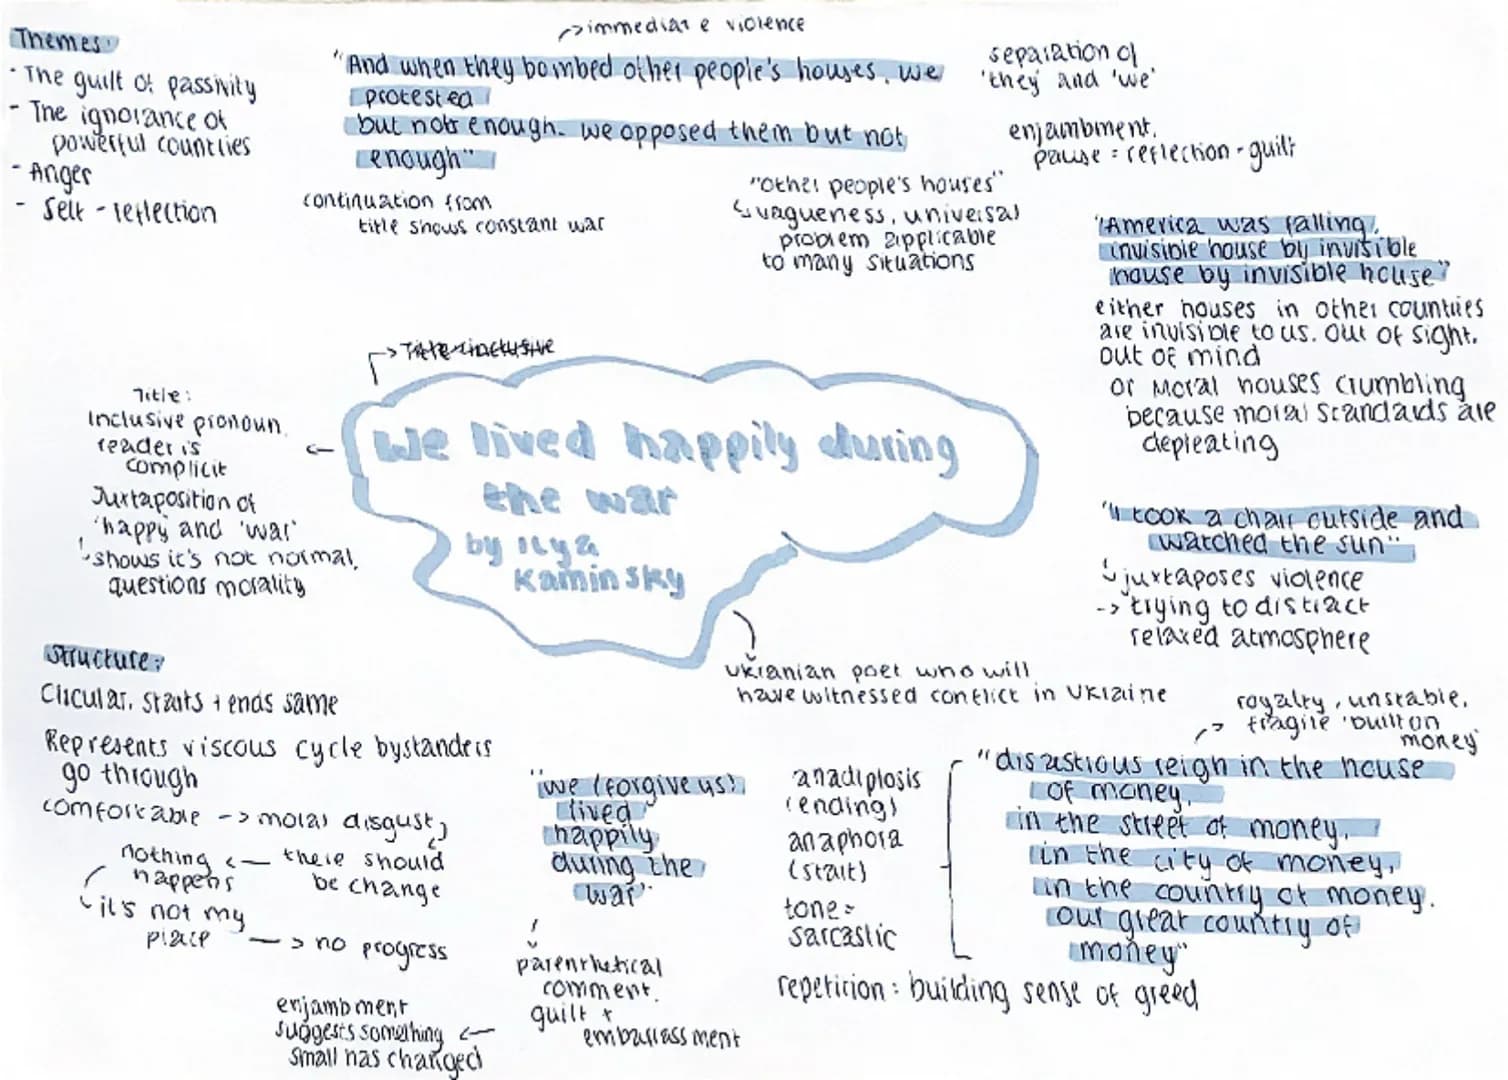 Themes:
- The guilt of passivity
- The ignorance of
powerful countries
- Anger
- Self-reflection
→immediate violence
"And when they bombed other people's houses, we
protested
but not enough. we opposed them but not
enough"
continuation from
title shows constant war
"other people's houses"
↳vagueness, universal
problem applicable
to many situations
separation of
'they' and 'we'
enjambment,
pause = reflection - guilt
"America was falling,
invisible house by invisible
house by invisible house"
either houses in other countries
are invisible to us. Out of sight,
out of mind
or Moral houses crumbling
because moral standards are
depleating
→ Title inclusive
Title:
Inclusive pronoun,
reader is
complicit
Juxtaposition of
'happy' and 'war'
↳shows it's not normal,
questions morality
We lived happily during
the war
by Ilya
Kaminsky
"I took a chair outside and
watched the sun"
↳juxtaposes violence
-> trying to distract
relaxed atmosphere
Ukranian poet who will
have witnessed conflict in Ukraine
Structure:
Circular, starts + ends same
Represents viscous cycle bystanders
go through
comfortable -> moral disgust
nothing <— there should
happens be change
↳it's not my
place —> no progress
"we (forgive us)
lived
happily
during the
war".
parenthetical
comment.
guilt +
embarrassment
enjambment
suggests something
small has changed
anadiplosis
(ending)
anaphora
(start)
tone =
sarcastic
royalty, unstable,
fragile 'built on
money'
"disastrous reign in the house
of money,
in the street of money,
in the city of money,
in the country of money.
our great country of
money"
repetition: building sense of greed